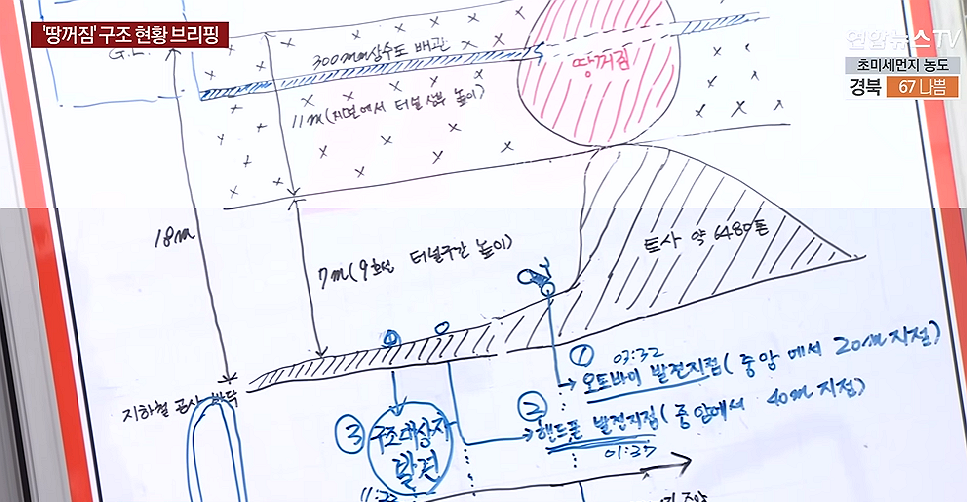 '땅꺼짐' 구조 현황 브리핑
연합뉴스TV
초미세먼지 농도
경북 67 나쁨
G.L.
300mm상수도 배관
땅꺼짐
11m(지면에서 터널상부 높이)
18m
7m(9호선 터널구간 높이)
토사 약 6480톤
지하철 공사 바닥
① 03:32
오토바이 발견지점(중앙에서 20m지점)
②
핸드폰 발견지점(중앙에서 40m지점)
01:35
③ 구조대상자
발견